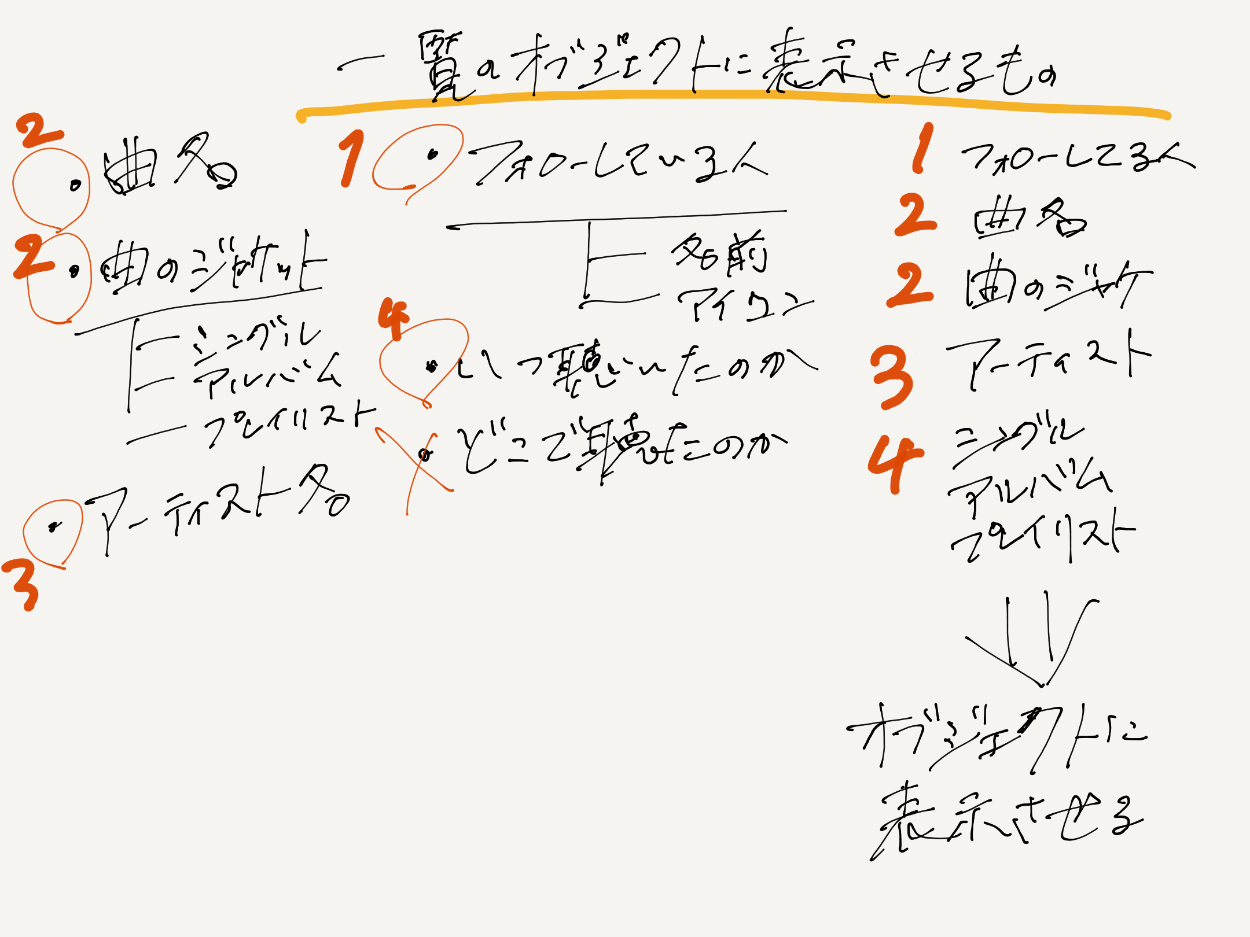 一覧のオブジェクトに表示させるもの
2 ・曲名
2 ・曲のジャケット
シングル
アルバム
プレイリスト
3 ・アーティスト名
1 ・フォローしている人
名前
アイコン
4 ・いつ聴いたのか
・どこで聴いたのか
1 フォローしてる人
2 曲名
2 曲のジャケ
3 アーティスト
4 シングル
アルバム
プレイリスト
オブジェクトに
表示させる